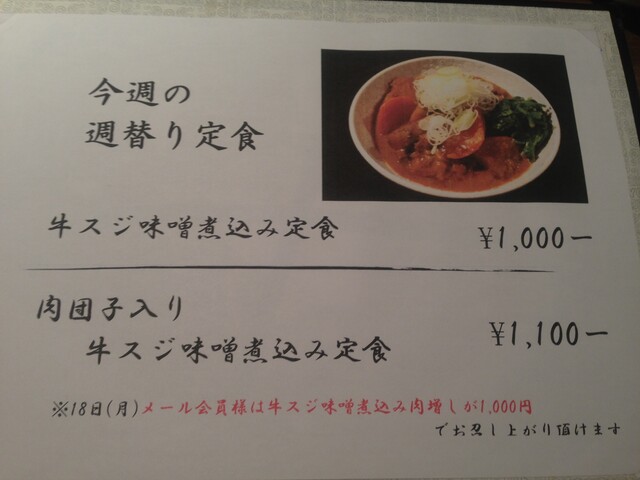 今週の
週替り定食
牛スジ味噌煮込み定食 ¥1,000ー
肉団子入り
牛スジ味噌煮込み定食 ¥1,100ー
※18日(月)メール会員様は牛スジ味噌煮込み肉増しが1,000円
でお召し上がり頂けます